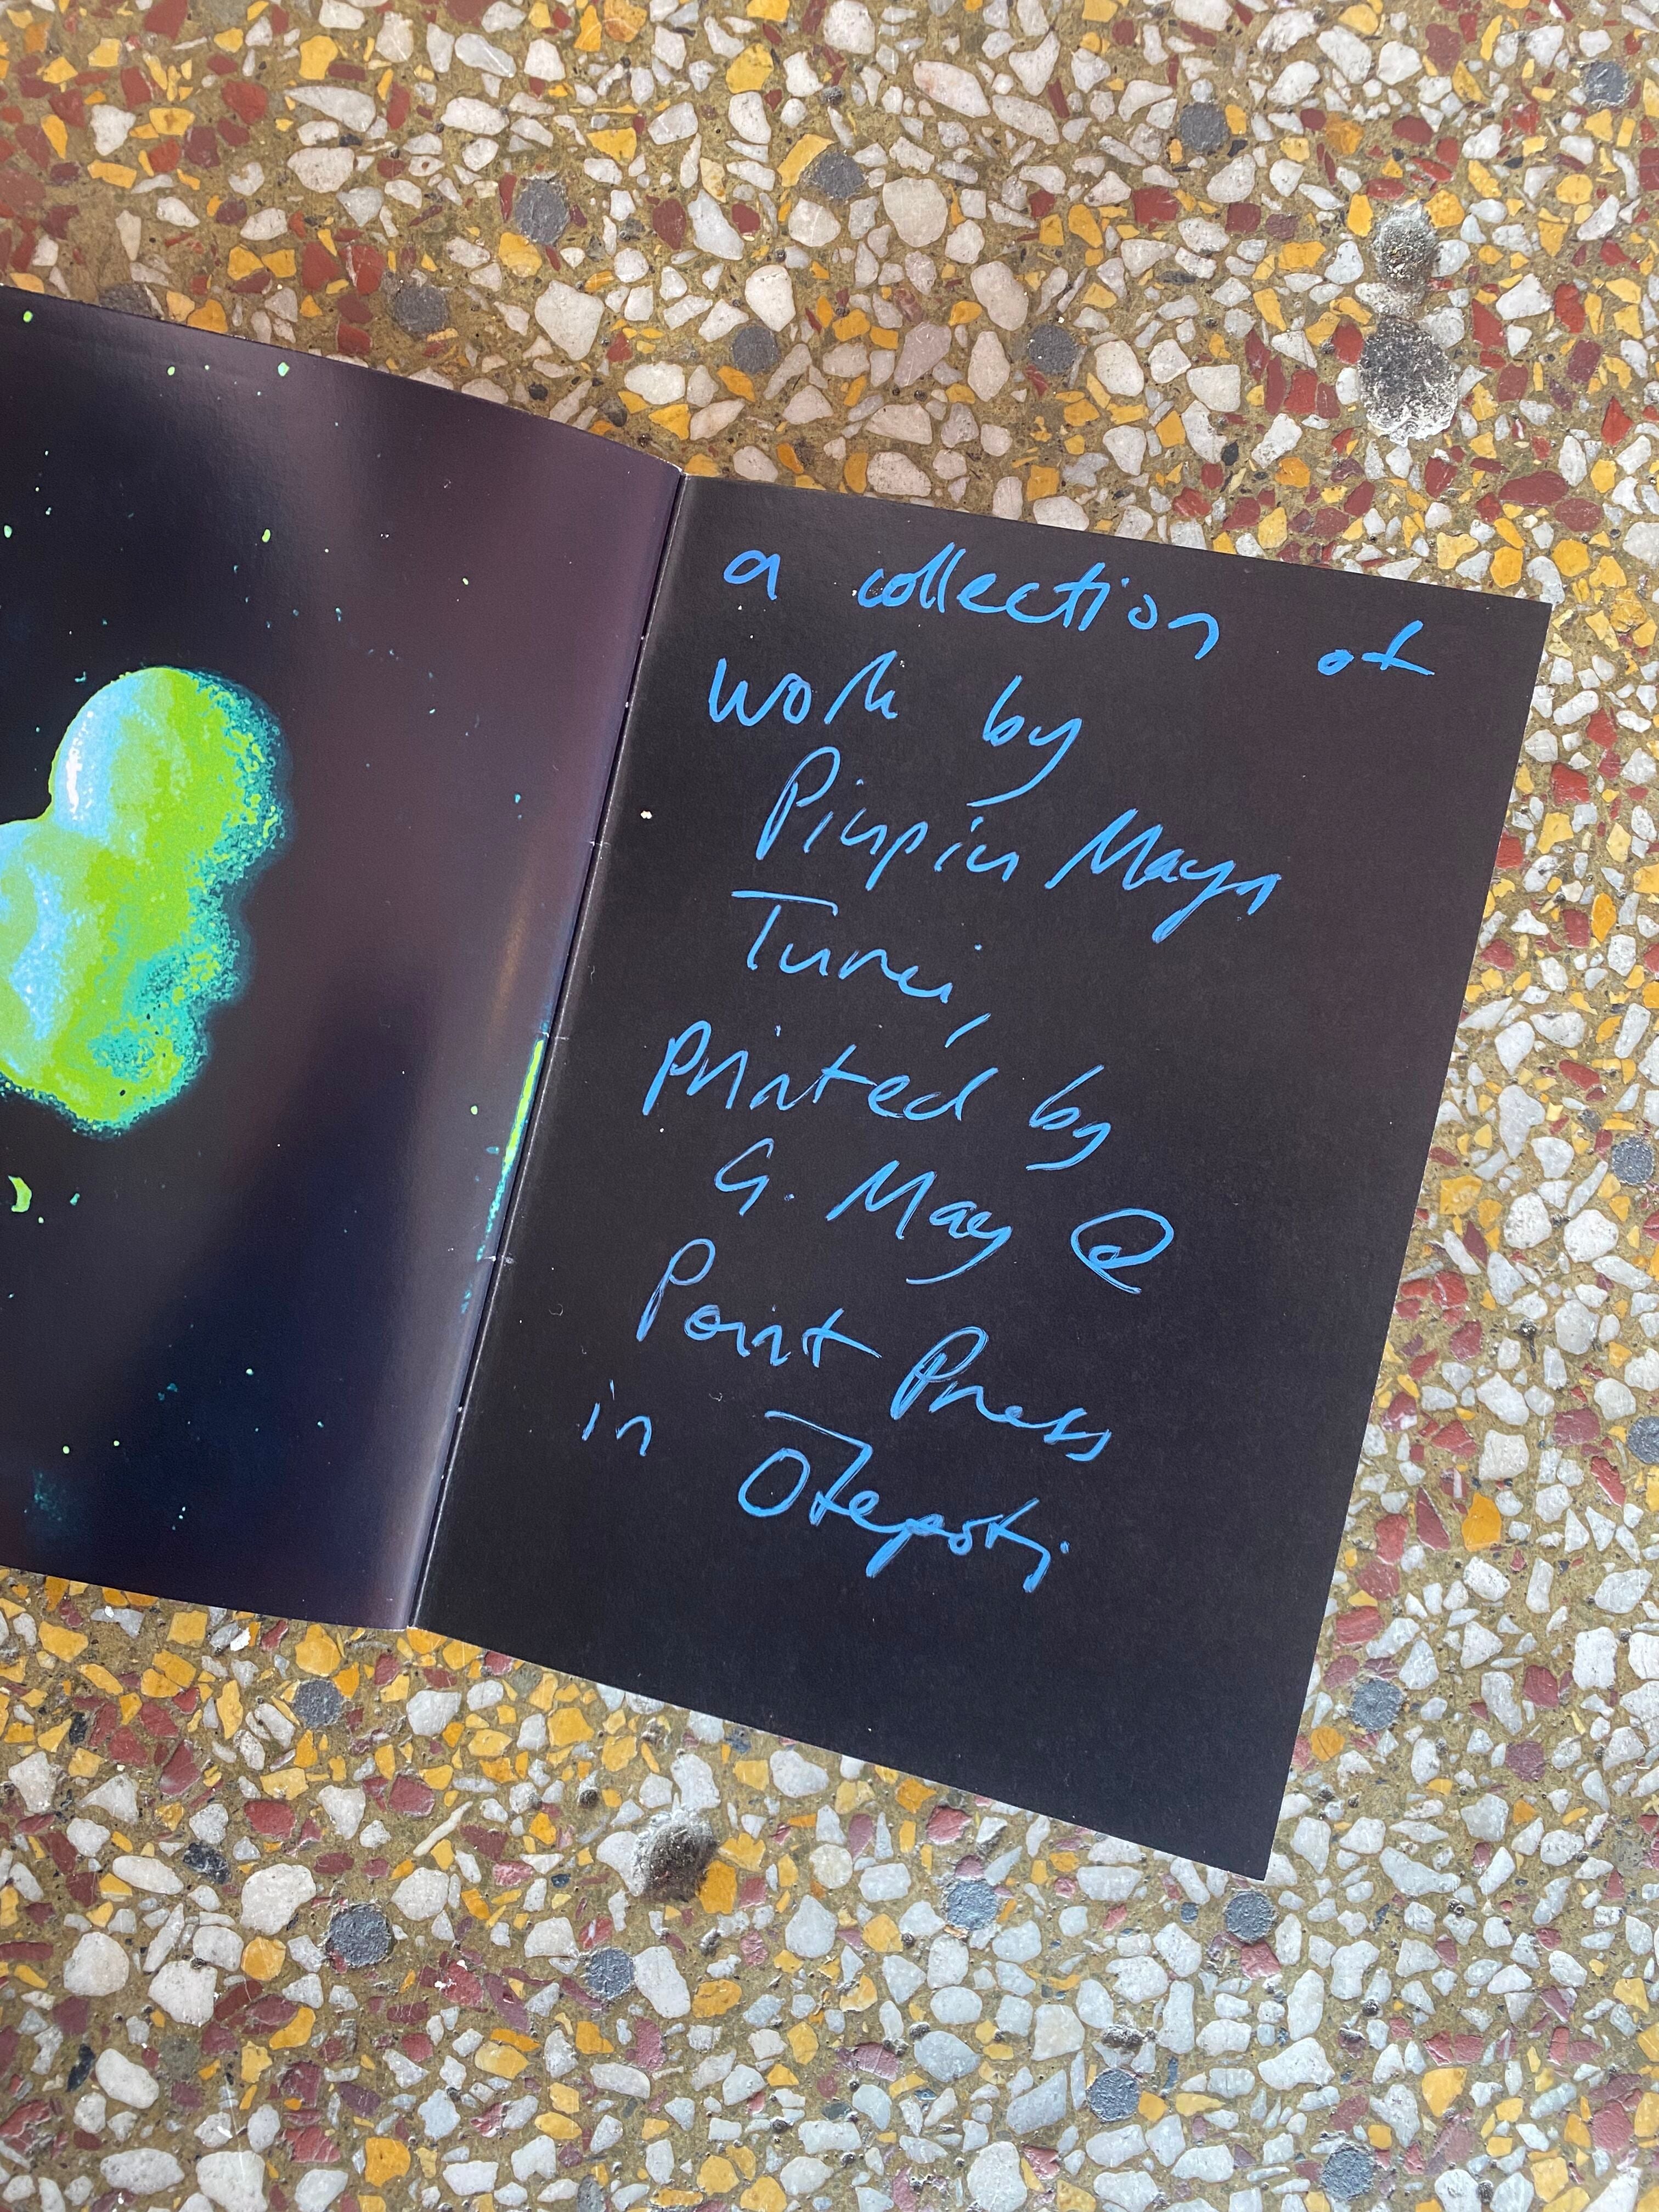 a collection of
work by
Pinpin Maya
Tunei,
printed by
G. May @
Point Press
in Ōtepoti